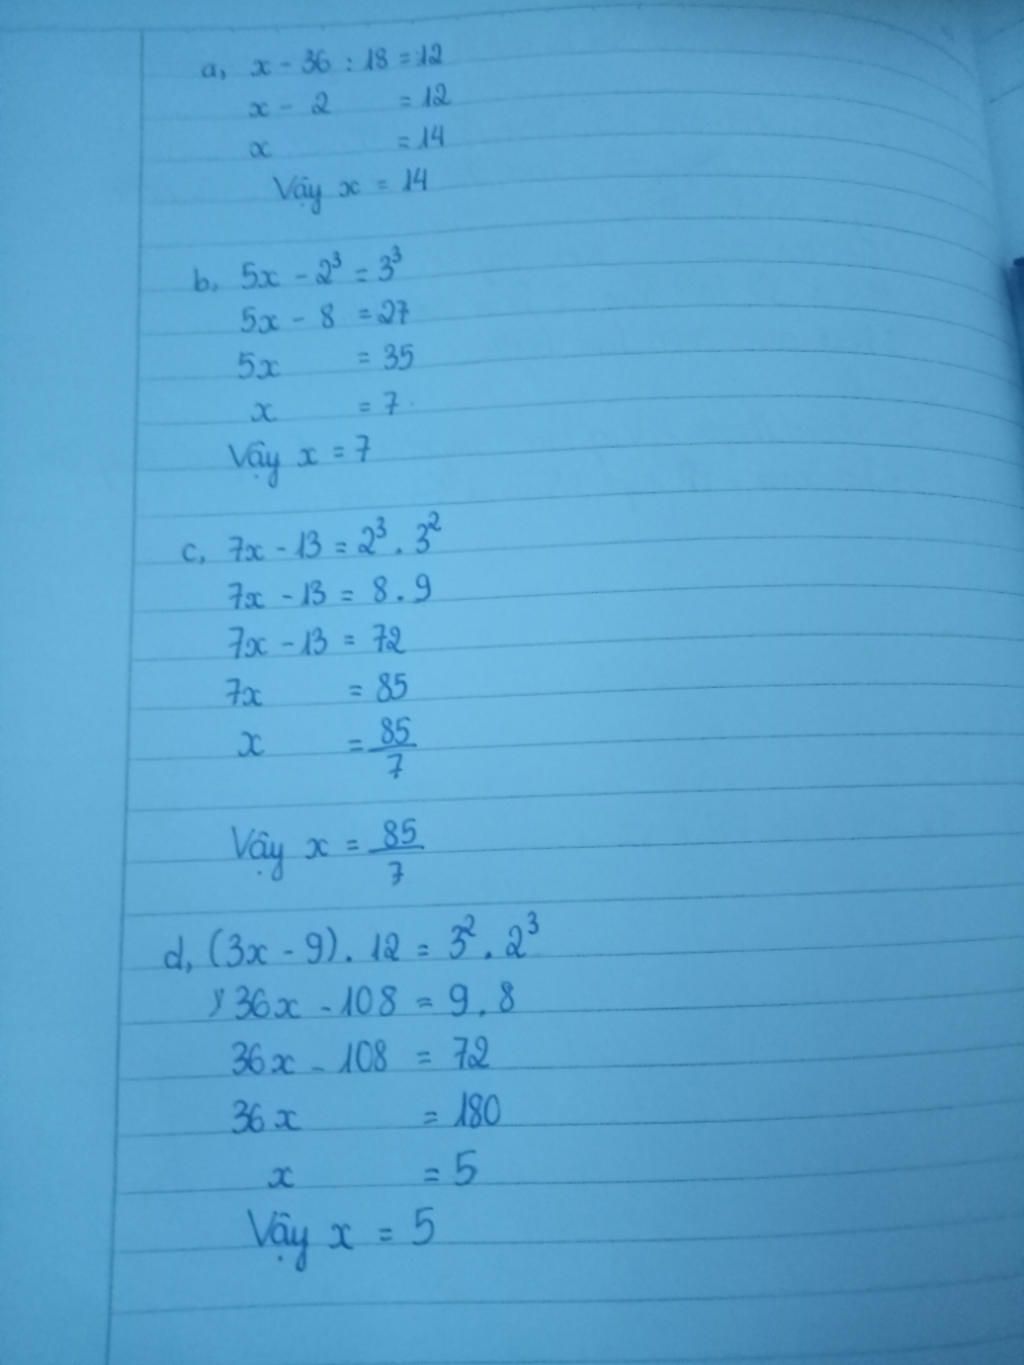 a, x - 36 : 18 = 12
x - 2 = 12
x = 14
Vậy x = 14
b, 5x - 2³ = 3³
5x - 8 = 27
5x = 35
x = 7
Vậy x = 7
c, 7x - 13 = 2³ . 3²
7x - 13 = 8 . 9
7x - 13 = 72
7x = 85
x = 85/7
Vậy x = 85/7
d, (3x - 9) . 12 = 3² . 2³
36x - 108 = 9 . 8
36x - 108 = 72
36x = 180
x = 5
Vậy x = 5